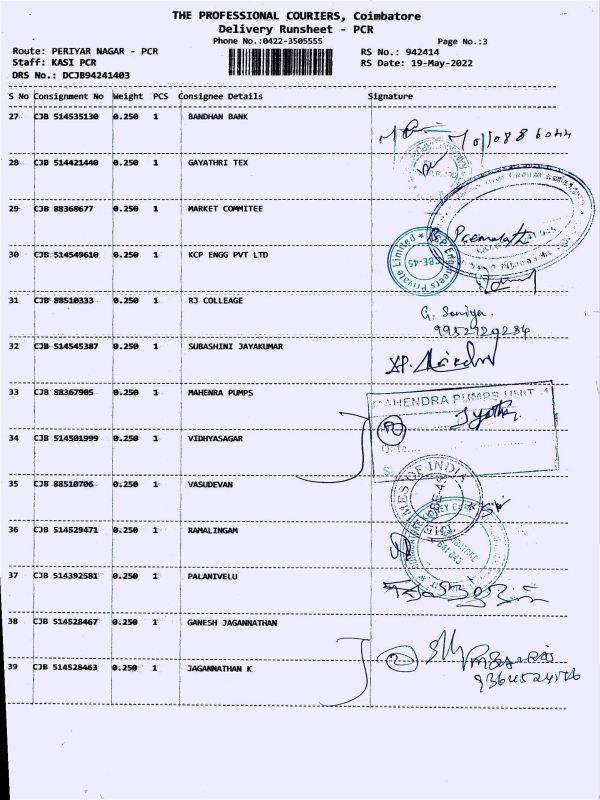 THE PROFESSIONAL COURIERS, Coimbatore
Delivery Runsheet - PCR
Phone No.:0422-3505555
Page No.:3
Route: PERIYAR NAGAR - PCR
RS No.: 942414
Staff: KASI PCR
RS Date: 19-May-2022
DRS No.: DCJB94241403
S No Consignment No Weight PCS Consignee Details Signature
27 CJB 514535130 0.250 1 BANDHAN BANK
28 CJB 514421440 0.250 1 GAYATHRI TEX
29 CJB 88368677 0.250 1 MARKET COMMITEE
Premalatha
30 CJB 514549610 0.250 1 KCP ENGG PVT LTD
KCP Engineers Private Limited
CBE-45
31 CJB 88510333 0.250 1 RJ COLLEAGE
G. Saniya.
9952729234
32 CJB 514545387 0.250 1 SUBASHINI JAYAKUMAR
33 CJB 88367905 0.250 1 MAHENRA PUMPS
MAHENDRA PUMPS UNIT
Jyothi
34 CJB 514501999 0.250 1 VIDHYASAGAR
35 CJB 88510706 0.250 1 VASUDEVAN
TIMES OF INDIA
36 CJB 514529471 0.250 1 RAMALINGAM
37 CJB 514392581 0.250 1 PALANIVELU
38 CJB 514528467 0.250 1 GANESH JAGANNATHAN
39 CJB 514528463 0.250 1 JAGANNATHAN K
2